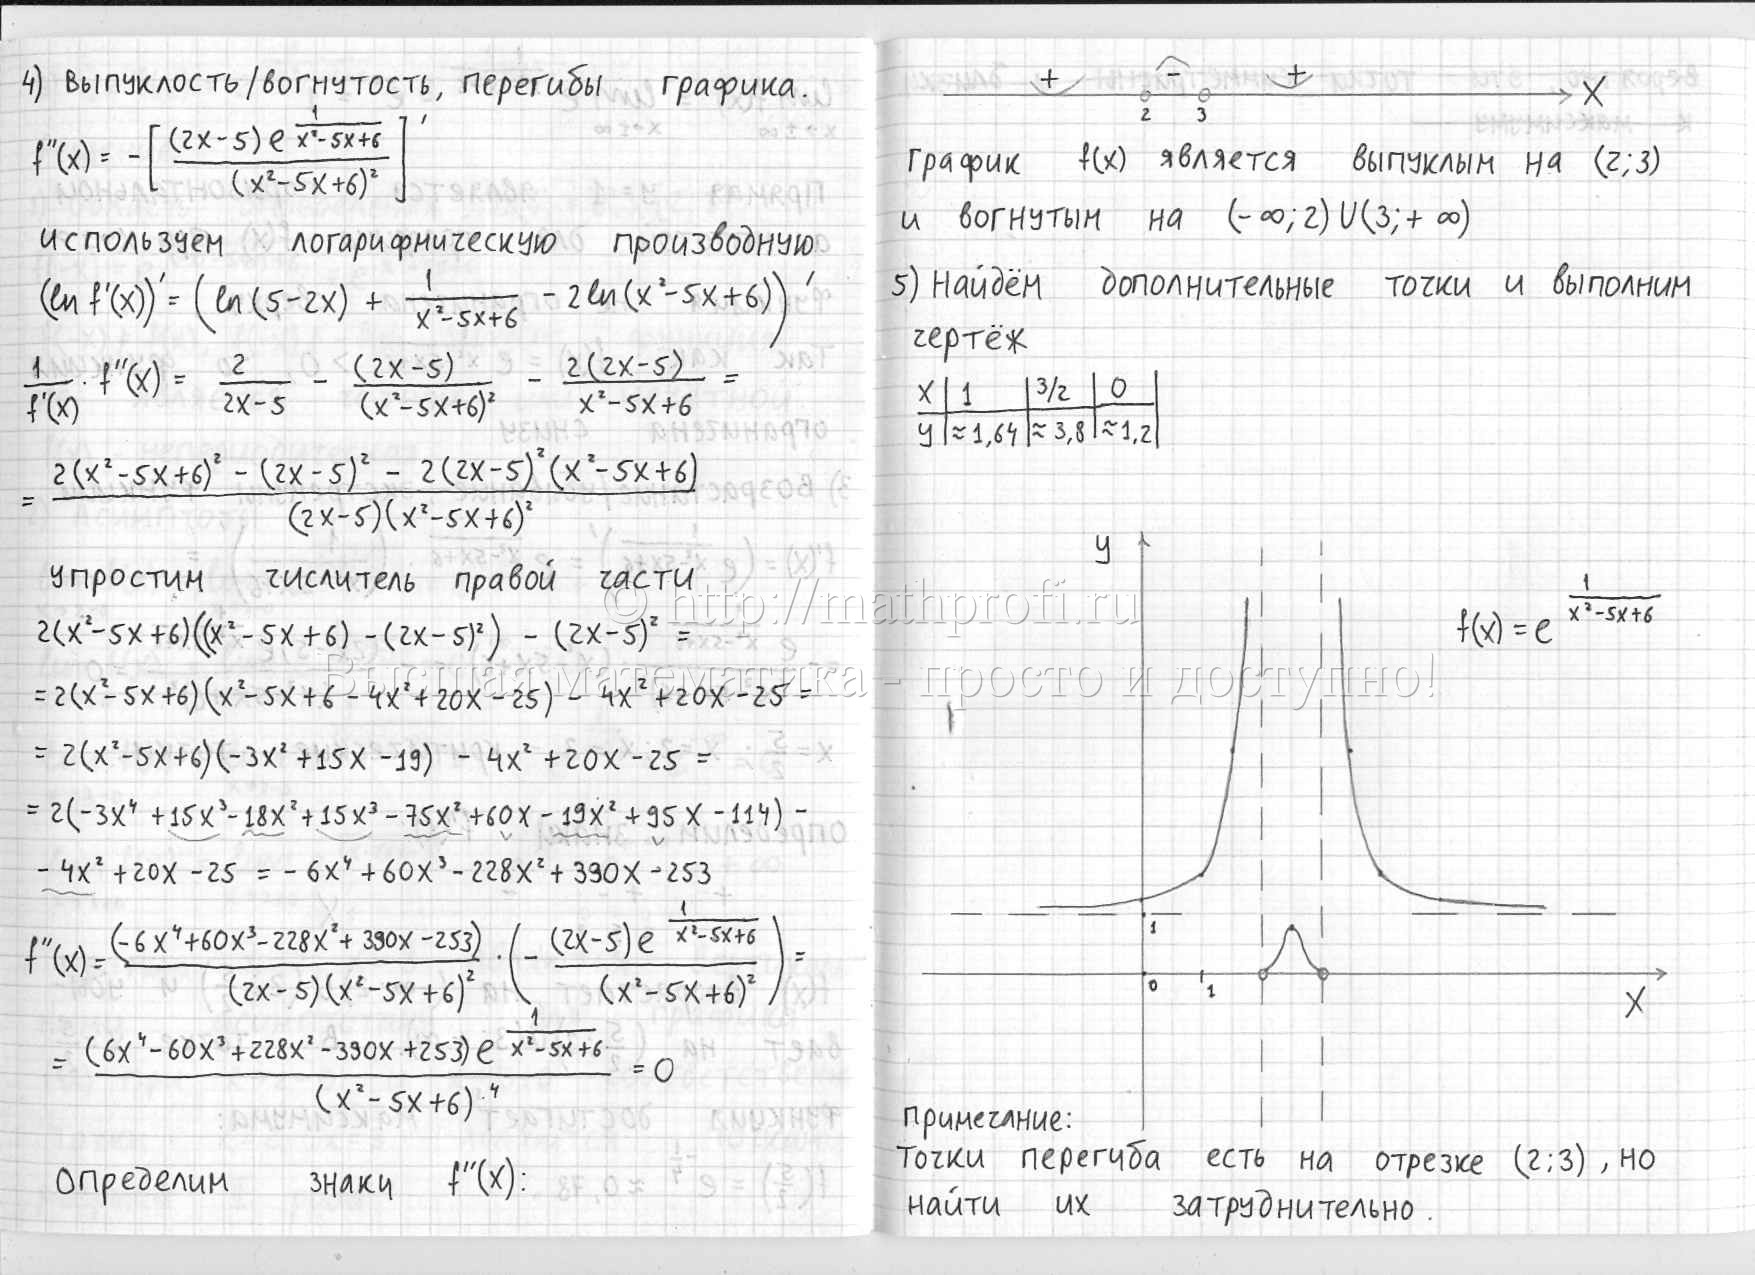 4) Выпуклость/вогнутость, перегибы графика.
f''(x) = -[((2x-5)e^(1/(x²-5x+6)))/((x²-5x+6)²)]'
используем логарифмическую производную
(ln f'(x))' = (ln(5-2x) + 1/(x²-5x+6) - 2ln(x²-5x+6))'
1/f'(x) · f''(x) = 2/(2x-5) - (2x-5)/(x²-5x+6)² - 2(2x-5)/(x²-5x+6) =
= (2(x²-5x+6)² - (2x-5)² - 2(2x-5)²(x²-5x+6))/((2x-5)(x²-5x+6)²)
упростим числитель правой части
2(x²-5x+6)((x²-5x+6)-(2x-5)²) - (2x-5)² =
= 2(x²-5x+6)(x²-5x+6-4x²+20x-25) - 4x²+20x-25 =
= 2(x²-5x+6)(-3x²+15x-19) - 4x²+20x-25 =
= 2(-3x⁴+15x³-18x²+15x³-75x²+60x-19x²+95x-114) -
- 4x²+20x-25 = -6x⁴+60x³-228x²+390x-253
f''(x) = (-6x⁴+60x³-228x²+390x-253)/((2x-5)(x²-5x+6)²) · (-((2x-5)e^(1/(x²-5x+6)))/((x²-5x+6)²)) =
= ((6x⁴-60x³+228x²-390x+253)e^(1/(x²-5x+6)))/((x²-5x+6)⁴) = 0
Определим знаки f''(x):
+ - +
2 3 X
График f(x) является выпуклым на (2;3)
и вогнутым на (-∞;2)U(3;+∞)
5) Найдём дополнительные точки и выполним
чертёж
x | 1 | 3/2 | 0
y | ≈1,64 | ≈3,8 | ≈1,2
y
f(x) = e^(1/(x²-5x+6))
1
0 1
X
Примечание:
Точки перегиба есть на отрезке (2;3), но
найти их затруднительно.
© http://mathprofi.ru
Высшая математика - просто и доступно!